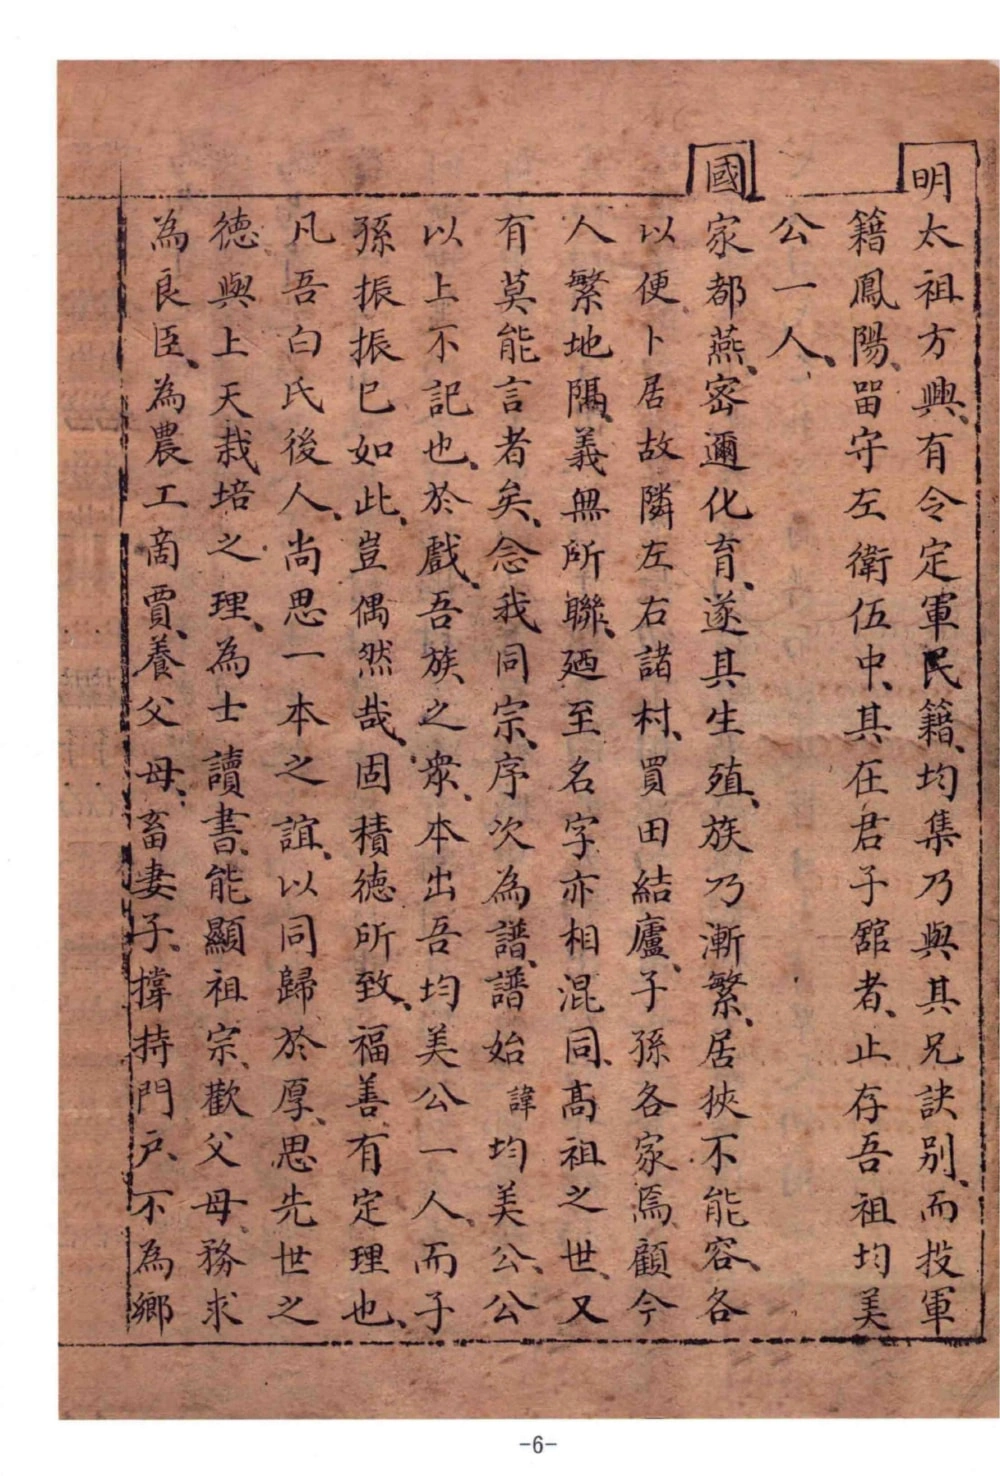 明太祖方興、有令定軍民籍、均集乃與其兄訣別、而投軍
籍鳳陽、留守左衛伍中、其在君子舘者、止存吾祖均美
公一人、
國家都燕、密邇化育、遂其生殖、族乃漸繁、居挾不能容、各
以便卜居故隣左右諸村、買田結廬、子孫各家焉、顧今
人繁地隔、義無所聯、廼至名字亦相混同、高祖之世、又
有莫能言者矣、念我同宗、序次為譜、譜始諱均美公、公
以上不記也、於戲、吾族之衆、本出吾均美公一人、而子
孫振振已如此、豈偶然哉、固積德所致、福善有定理也、
凡吾白氏後人、尚思一本之誼、以同歸於厚、思先世之
德與上天栽培之理、為士讀書、能顯祖宗、歡父母、務求
為良臣、為農工商賈、養父母、畜妻子、撑持門户、不為鄉
-6-